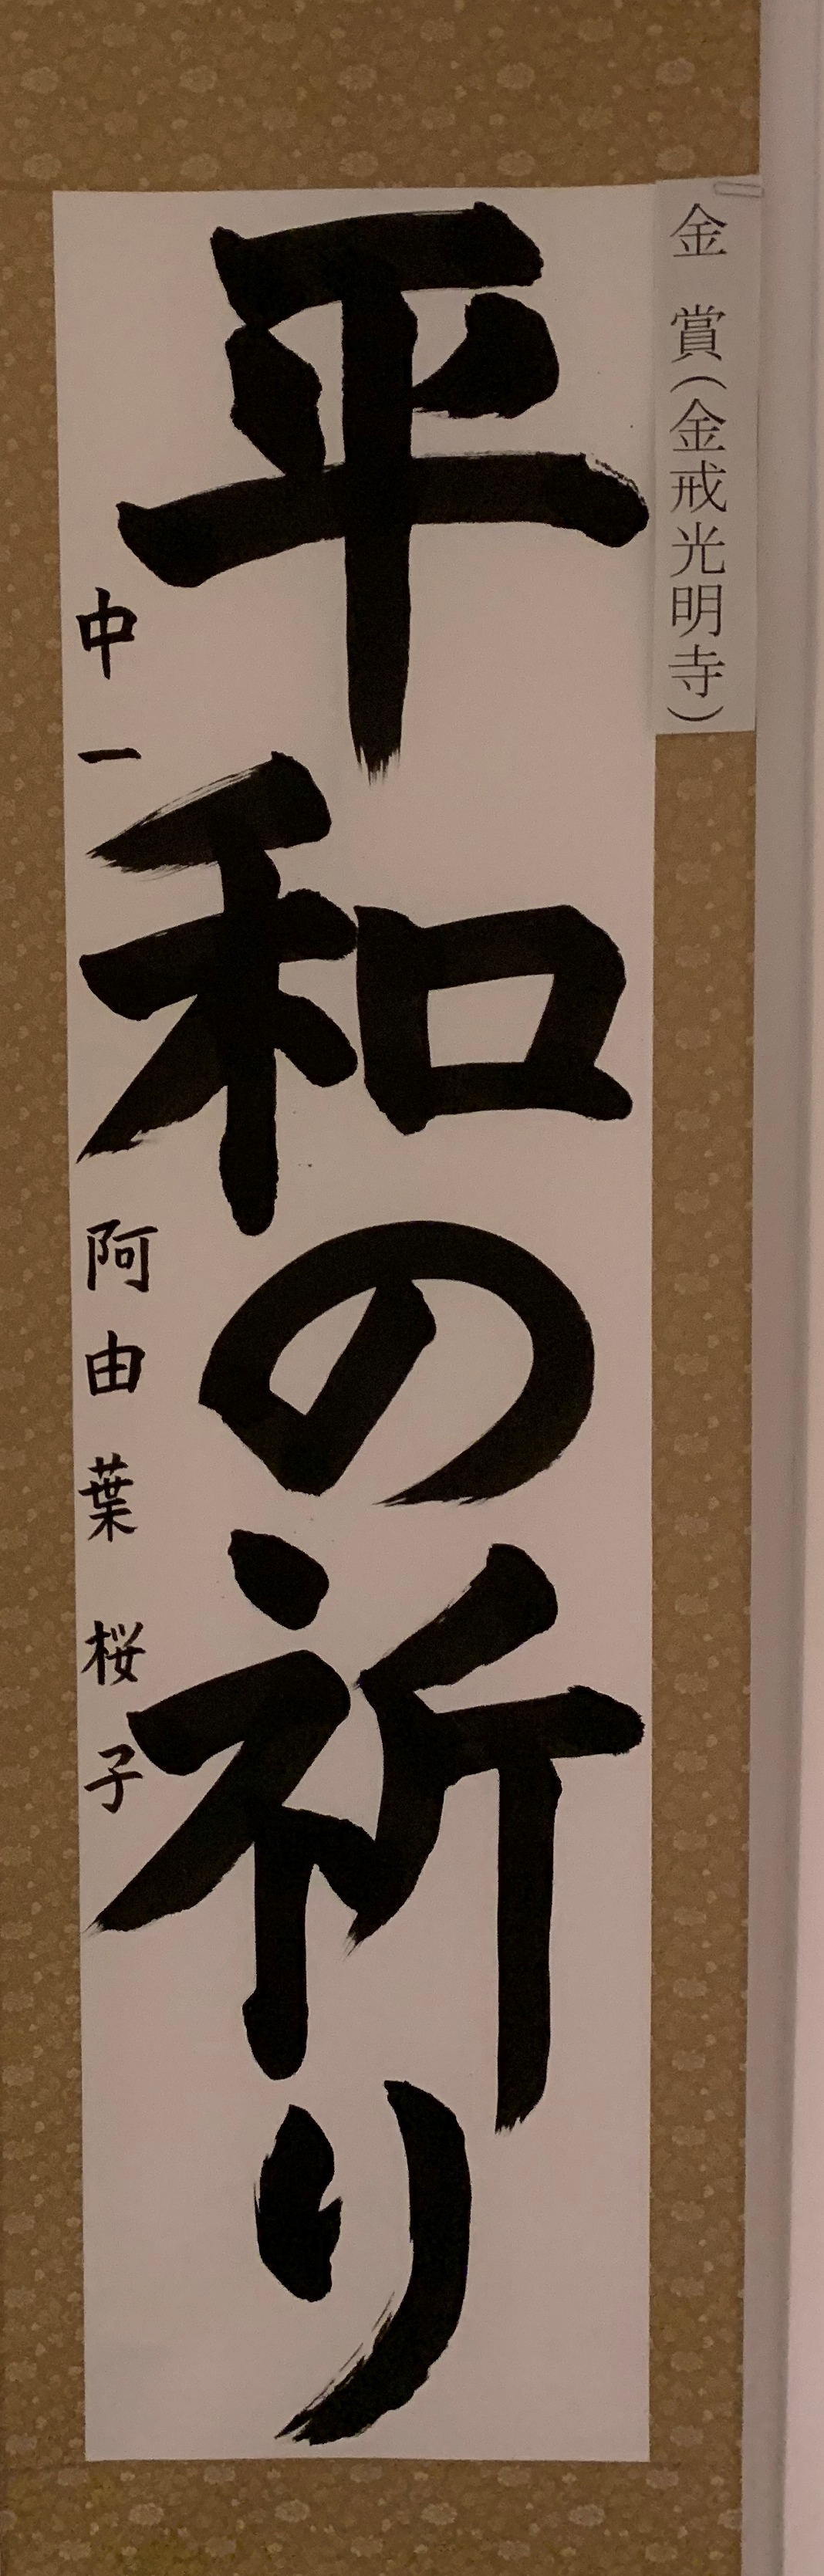 金 賞(金戒光明寺)
平和の祈り
中一 阿由葉 桜子